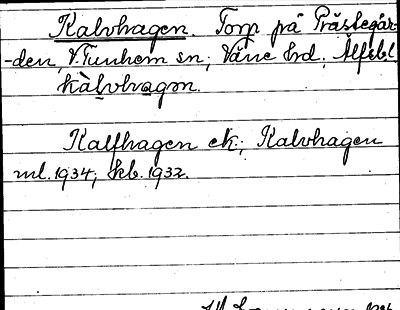 Kalvhagen. Torp på Prästegår-
-den V. Tunhem sn; Väne hrd; Älfsb.l.
kàlvhagən.
Kalfhagen ek; Kalvhagen
ml. 1934; skb. 1932.